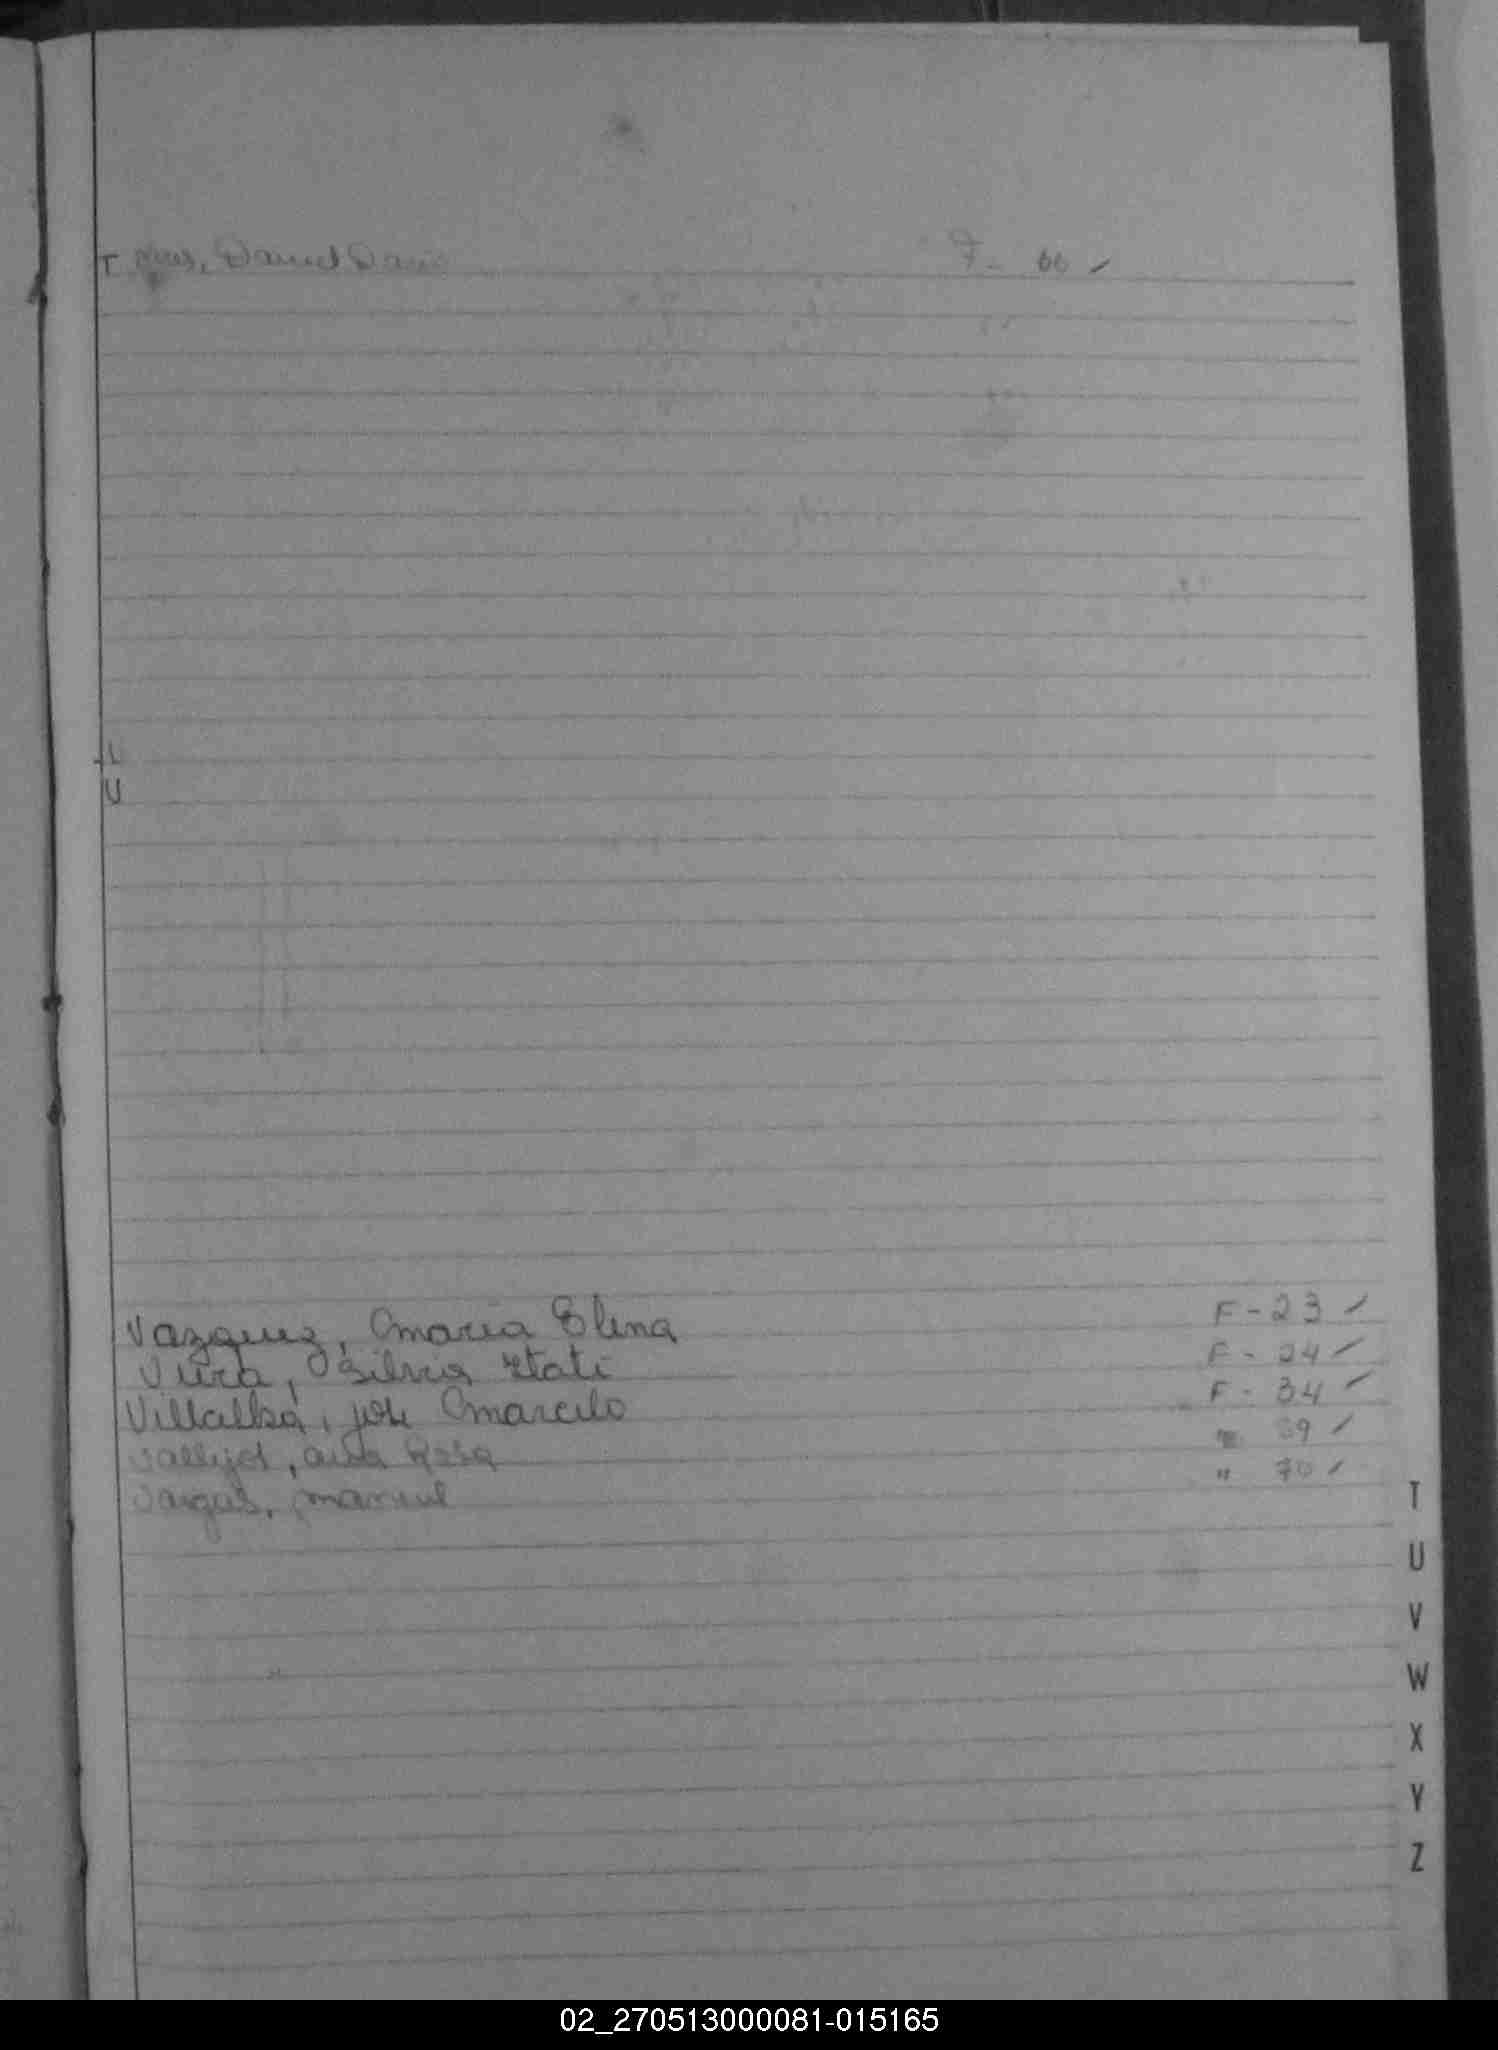 T
Daniel David F - 60
U
Vazquez, Maria Elena F-23
Vera, Silvia Itati F - 24
Villalba, José Marcelo F - 34
Vallejos, Ana Rosa " 39
Vargas, Manuel " 70
T
U
V
W
X
Y
Z
02_270513000081-015165